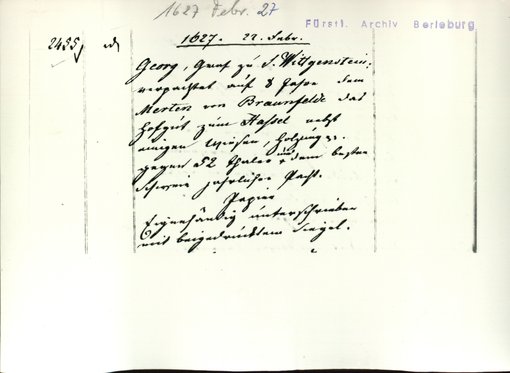 1627 Febr. 27
Fürstl. Archiv Berleburg
2455
1627. 27. Febr.
Georg, Graf zu S. Wittgenstein:
verpachtet auf 8 Jahre dem
Merten von Braunfelde das
Hofgut zum Hassel nebst
einigen Wiesen, Holzung
gegen 52 Thaler und dem besten
Schwein jährlicher Pacht.
Papier
Eigenhändig unterschrieben
mit beigedrücktem Siegel.